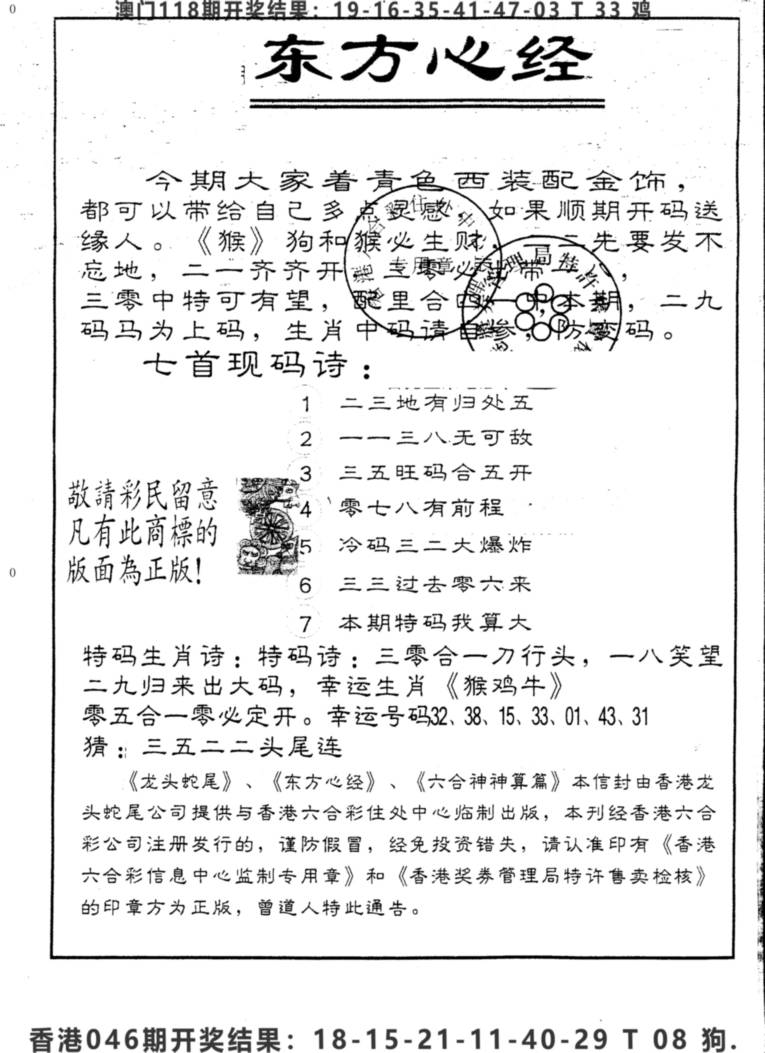 澳门118期开奖结果：19-16-35-41-47-03 T 33 鸡
东方心经
今期大家着青色西装配金饰，
都可以带给自己多点灵感，如果顺期开码送
缘人。《猴》狗和猴必生财，一二先要发不
忘地，二一齐齐开，三零必出带
三零中特可有望，配里合四一中本期，二九
码马为上码，生肖中码请自参，防变码。
七首现码诗：
1 二三地有归处五
2 一一三八无可敌
3 三五旺码合五开
4 零七八有前程
5 冷码三二大爆炸
6 三三过去零六来
7 本期特码我算大
敬請彩民留意
凡有此商標的
版面為正版！
特码生肖诗：特码诗：三零合一刀行头，一八笑望
二九归来出大码，幸运生肖《猴鸡牛》
零五合一零必定开。幸运号码32、38、15、33、01、43、31
猜：三五二二头尾连
《龙头蛇尾》、《东方心经》、《六合神神算篇》本信封由香港龙
头蛇尾公司提供与香港六合彩住处中心临制出版，本刊经香港六合
彩公司注册发行的，谨防假冒，经免投资错失，请认准印有《香港
六合彩信息中心监制专用章》和《香港奖券管理局特许售卖检核》
的印章方为正版，曾道人特此通告。
香港046期开奖结果：18-15-21-11-40-29 T 08 狗.
0
0